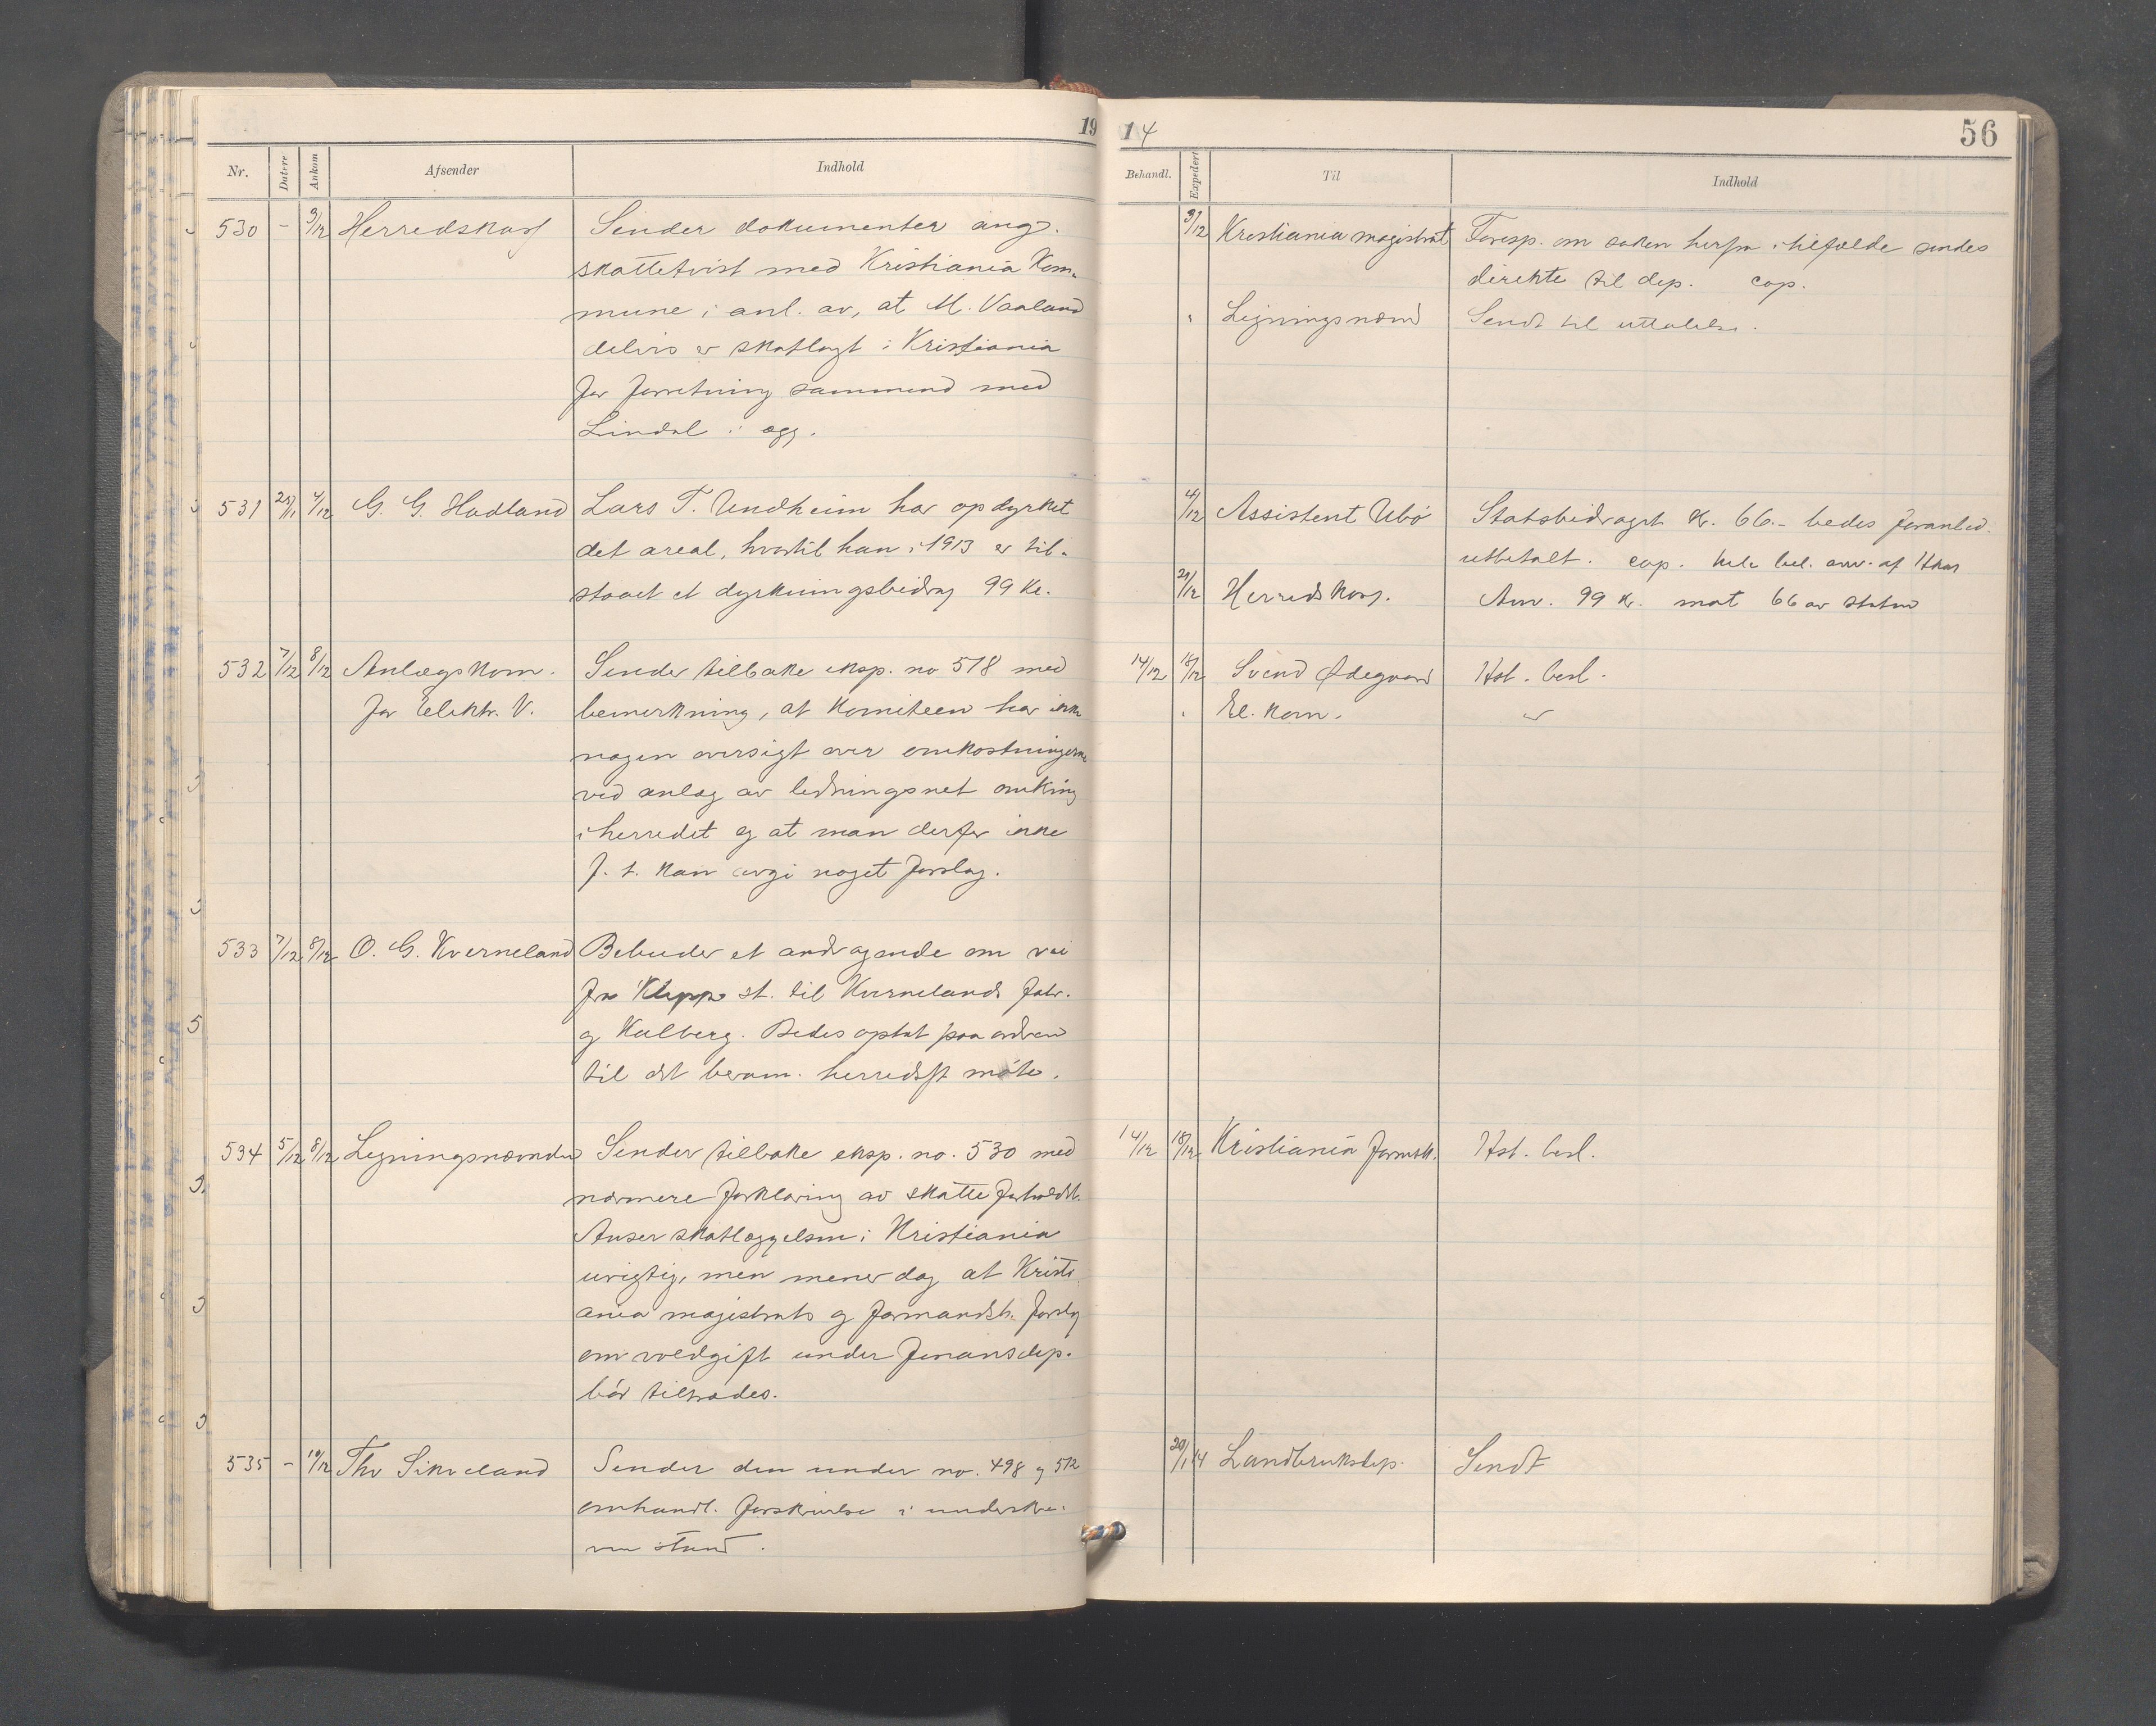 19
Nr. Datert Ankom Afsender Indhold
530 - 3/12 Herredskas Sender dokumenter ang.
skattetvist med Kristiania Kom-
mune i anl. av, at M. Vaaland
delvis er skatlagt i Kristiania
for forretning sammen med
Lindal i egg.
531 25/11 4/12 G. G. Hadland Lars T. Undheim har opdyrket
det areal, hvortil han i 1913 er til-
staaet et dyrkningsbidrag 99 Kr.
532 7/12 8/12 Anlægskom. Sender tilbake eksp. no 518 med
for Elektr. V. bemerkning, at Komiteen har ikke
nogen oversigt over omkostningerne
ved anlæg av ledningsnet omkring
i herredet og at man derfor ikke
f. t. kan avgi noget forslag.
533 7/12 8/12 O. G. Kverneland Bebuder et andragende om vei
fra Klepp st. til Kvernelands fabr.
og Kalberg. Bedes optat paa
til det beram. herredsst møte.
534 5/12 8/12 Ligningsnævnden Sender tilbake eksp. no. 530 med
nærmere forklaring av skatteforholdet.
Anser skatlæggelsen i Kristiania
urigtig, men mener dog at Kristi
ania magistrats og formandsk. forslag
om voldgift under Finansdep.
bør tiltrædes.
535 - 10/12 Thv Sikveland Sender den under no. 498 og 512
omhandl. forskrivelse i underskre-
ven stand.
14 56
Behandl. Expedert Til Indhold
3/12 Kristiania magistrat Foresp. om saken herfra i tilfælde sendes
direkte til dep. cop.
" Ligningsnævnd Sendt til uttalelse.
4/12 Assistent Ubø Statsbidraget Kr. 66.- bedes foranled.
utbetalt. cop. hele bel. anv. af Hkas
29/12 Herredskas. Anv. 99 Kr. mot 66 av staten
14/12 18/12 Svend Ødegaard Hst. besl.
" El. Kom. "
14/12 18/12 Kristiania formsk. Hst. besl.
20/1 14 Landbruksdep. Sendt